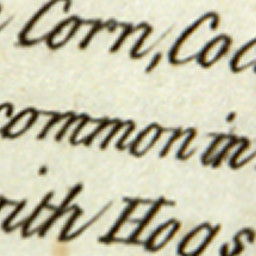 Corn, Co
common in
with Hogs